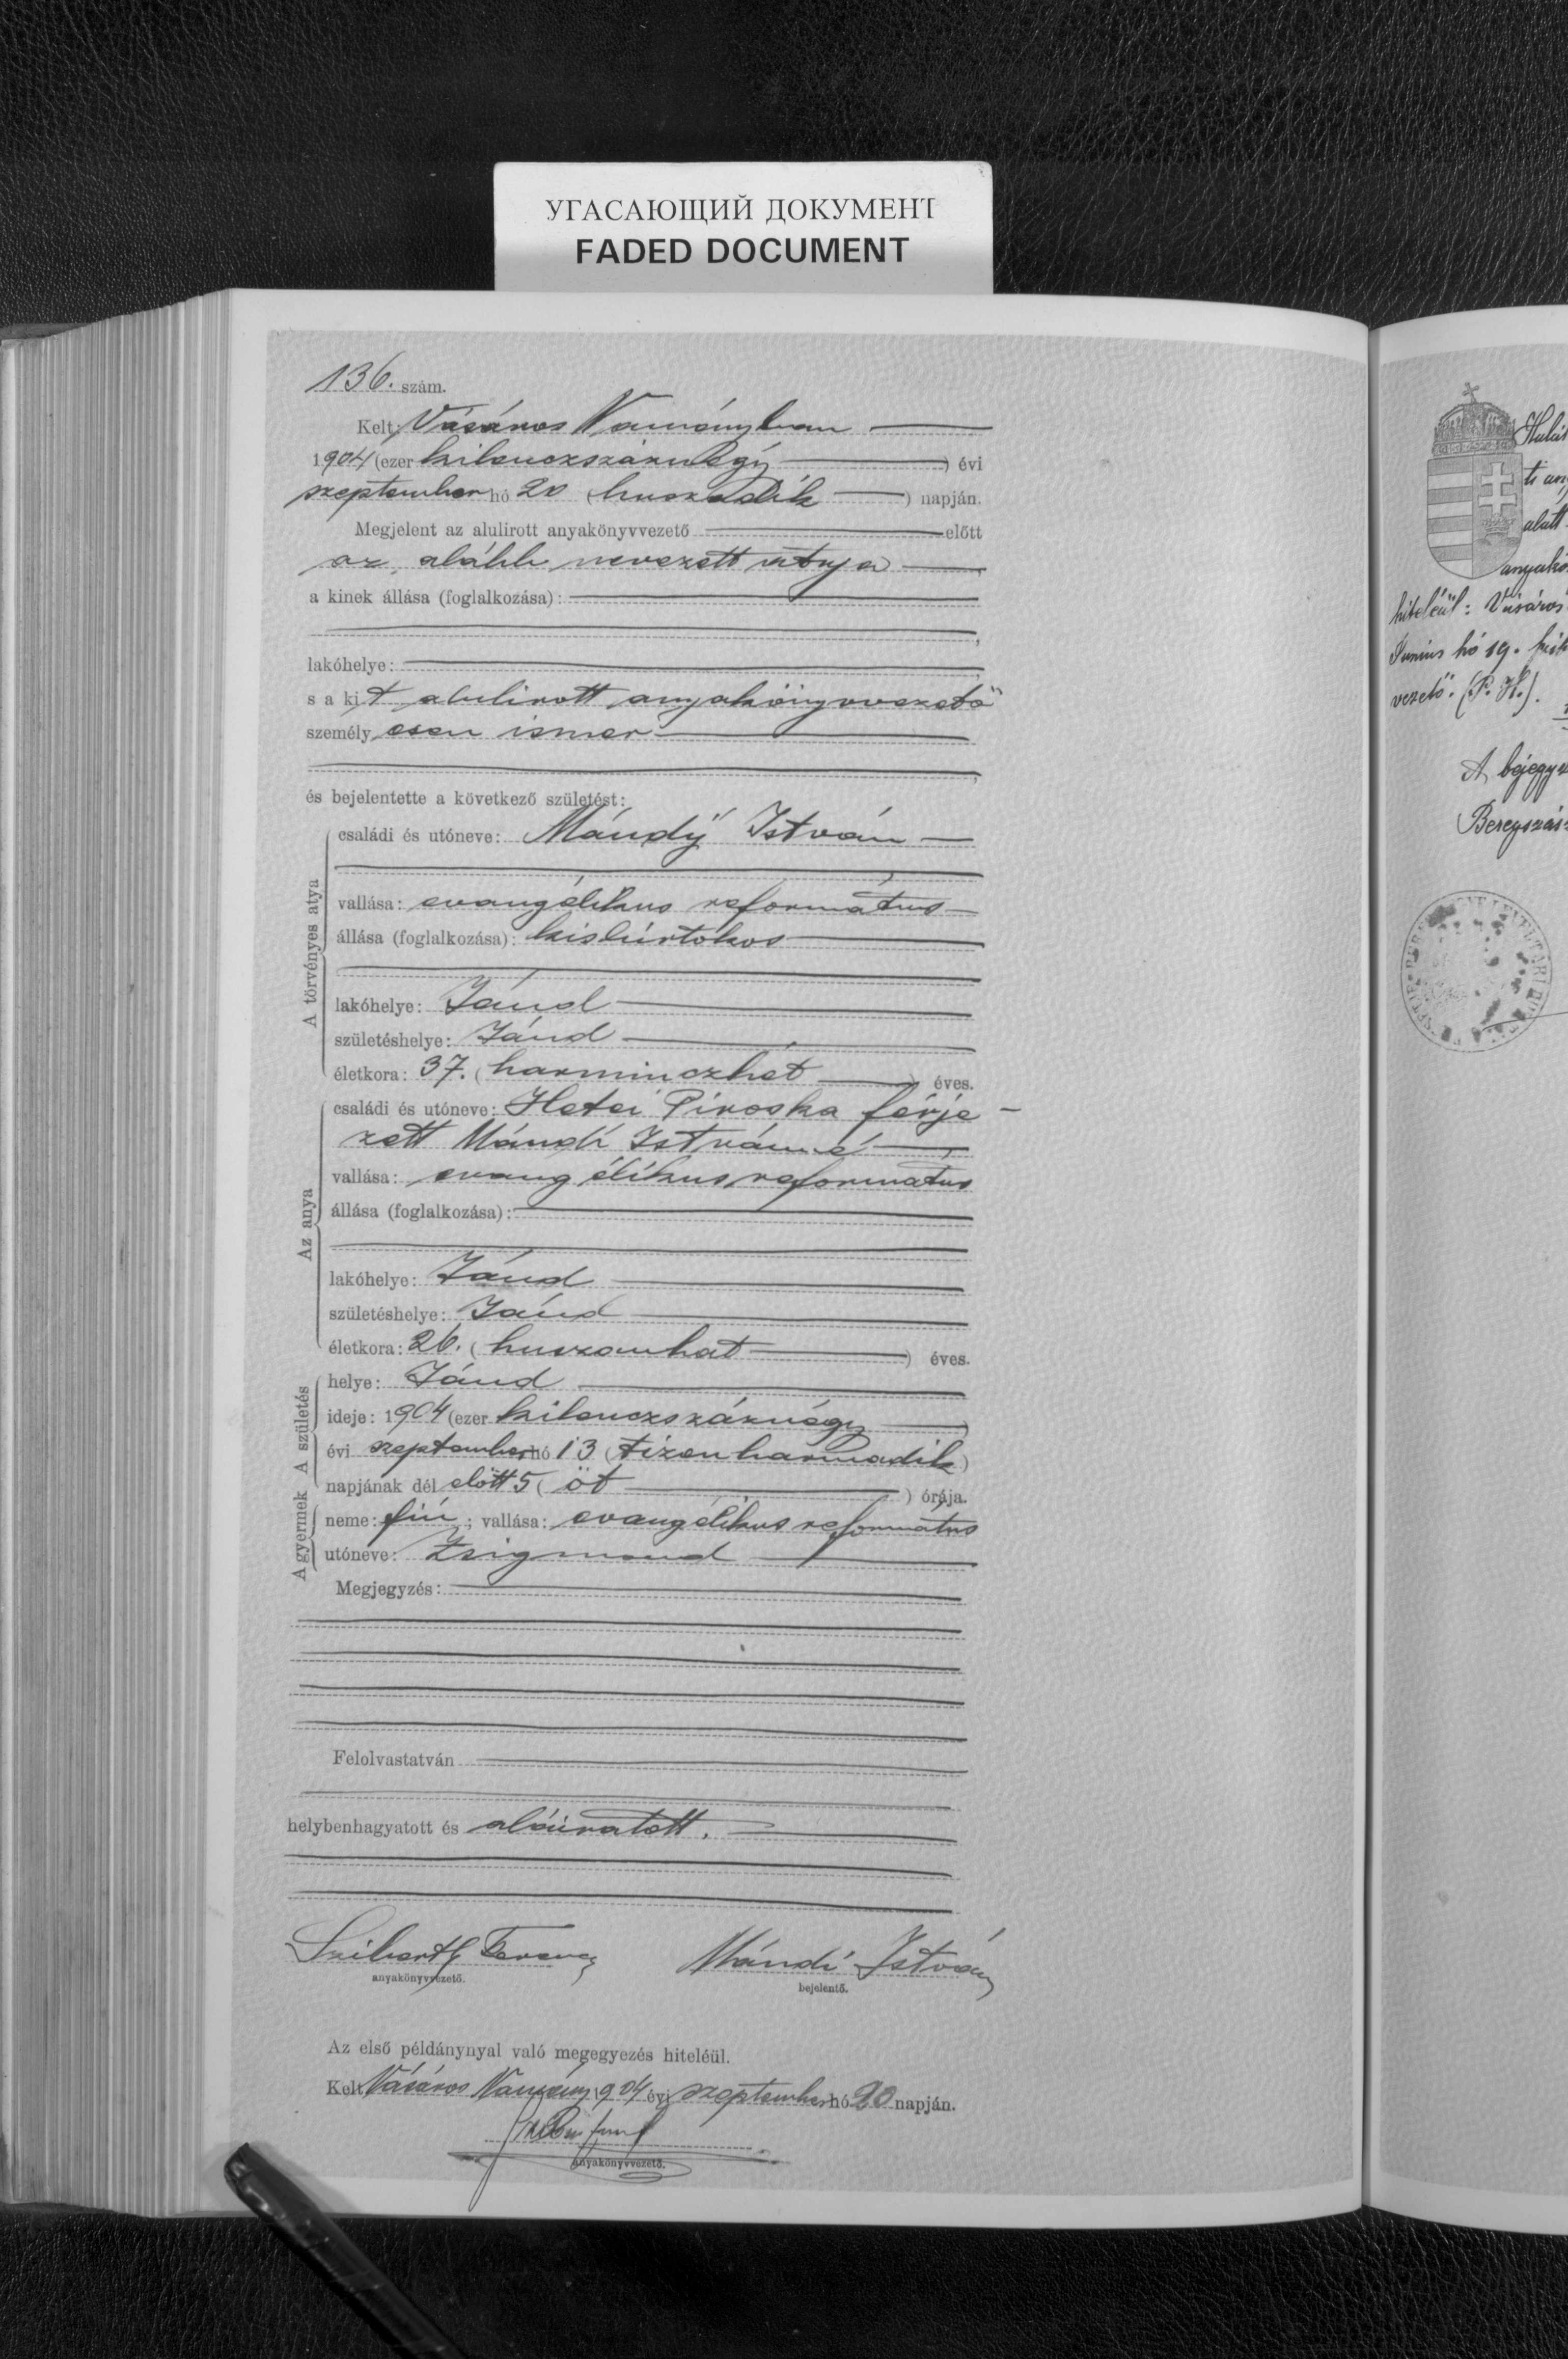 УГАСАЮЩИЙ ДОКУМЕНТ
FADED DOCUMENT
136. szám.
Kelt: Vásáros Naményban
1904 (ezer kilenczszáznégy) évi
szeptember hó 20 (huszadik) napján.
Megjelent az alulirott anyakönyvvezető előtt
az alább nevezett atyja
a kinek állása (foglalkozása):
lakóhelye:
s a kit alulirott anyakönyvvezető
személyesen ismer
és bejelentette a következő születést:
A törvényes atya
családi és utóneve: Mándÿ István
vallása: evangélikus református
állása (foglalkozása): kisbirtokos
lakóhelye: Jánd
születéshelye: Jánd
életkora: 37. (harminczhét) éves.
Az anya
családi és utóneve: Hetei Piroska férje-
zett Mándi Istvánné
vallása: evangélikus református
állása (foglalkozása):
lakóhelye: Jánd
születéshelye: Jánd
életkora: 26. (huszonhat) éves.
A születés
helye: Jánd
ideje: 1904 (ezer kilenczszáznégy)
évi szeptember hó 13 (tizenharmadik)
napjának dél előtt 5 (öt) órája.
A gyermek
neme: fiú; vallása: evangélikus református
utóneve: Zsigmond
Megjegyzés:
Felolvastatván
helybenhagyatott és aláiratott.
Ferencz Mándi István
anyakönyvvezető. bejelentő.
Az első példánynyal való megegyezés hiteléül.
Kelt Vásáros Namény 1904 évi szeptember hó 20 napján.
anyakönyvvezető.
ti any
alatt
anyakö
hiteléül: Vásáros
Junius hó 19.
vezető. (P. H.).
A bejegyz
Beregszás